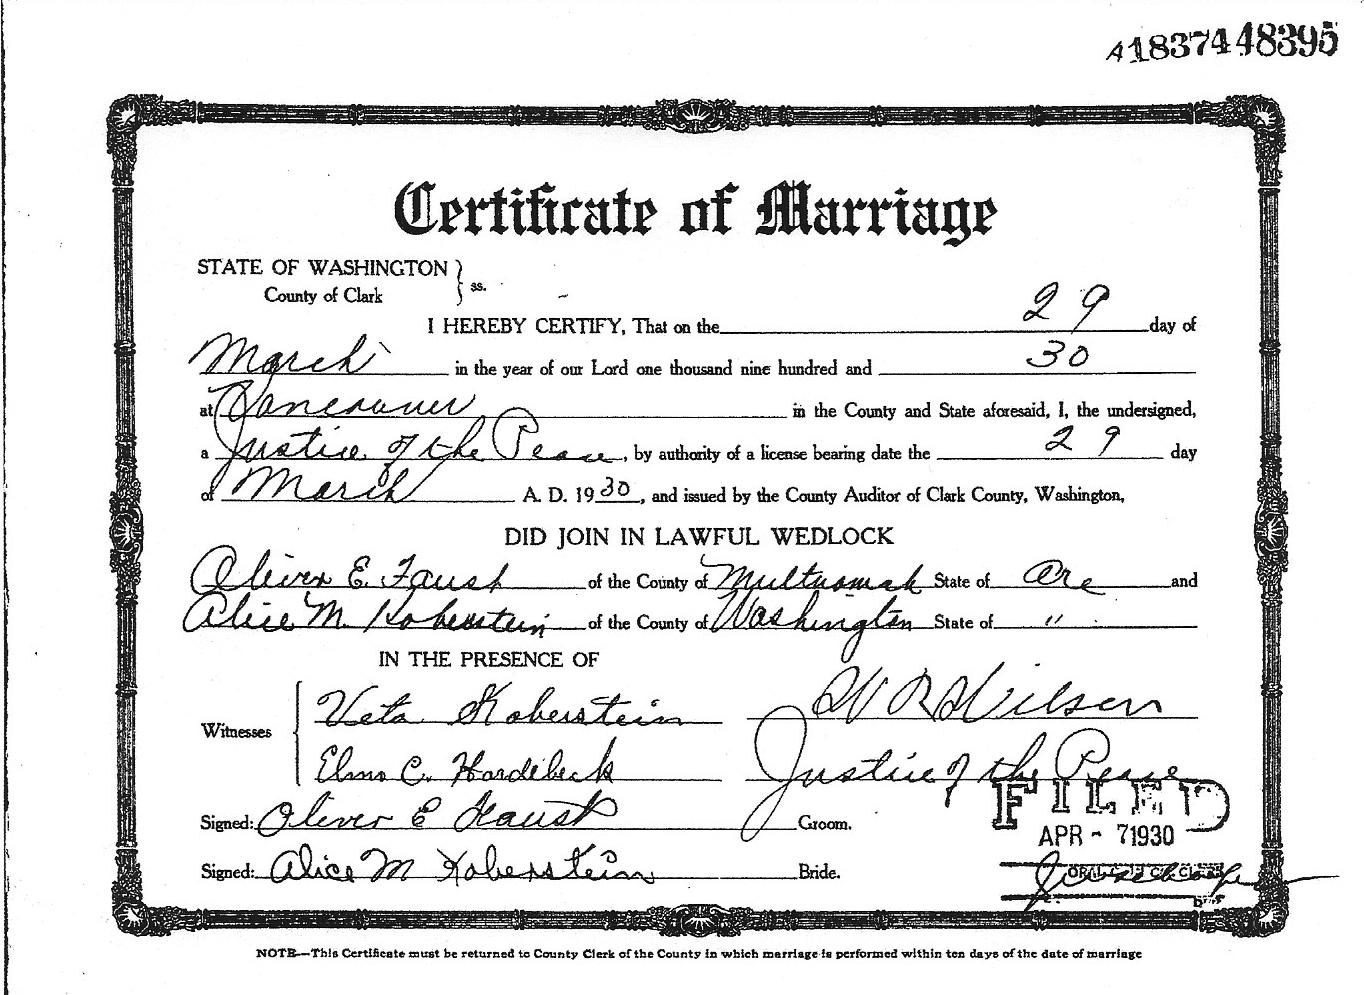 A1837448395
Certificate of Marriage
STATE OF WASHINGTON } ss.
County of Clark
I HEREBY CERTIFY, That on the 29 day of
March in the year of our Lord one thousand nine hundred and 30
at Vancouver in the County and State aforesaid, I, the undersigned,
a Justice of the Peace, by authority of a license bearing date the 29 day
of March A. D. 1930, and issued by the County Auditor of Clark County, Washington,
DID JOIN IN LAWFUL WEDLOCK
Oliver E. Faust of the County of Multnomah State of Ore and
Alice M. Koberstein of the County of Washington State of "
IN THE PRESENCE OF
Witnesses
Veta Koberstein
W R Wilson
Elmo C. Hardebeck
Justice of the Peace
Signed: Oliver E Faust Groom.
FILED
APR - 7 1930
Signed: Alice M Koberstein Bride.
NOTE—This Certificate must be returned to County Clerk of the County in which marriage is performed within ten days of the date of marriage